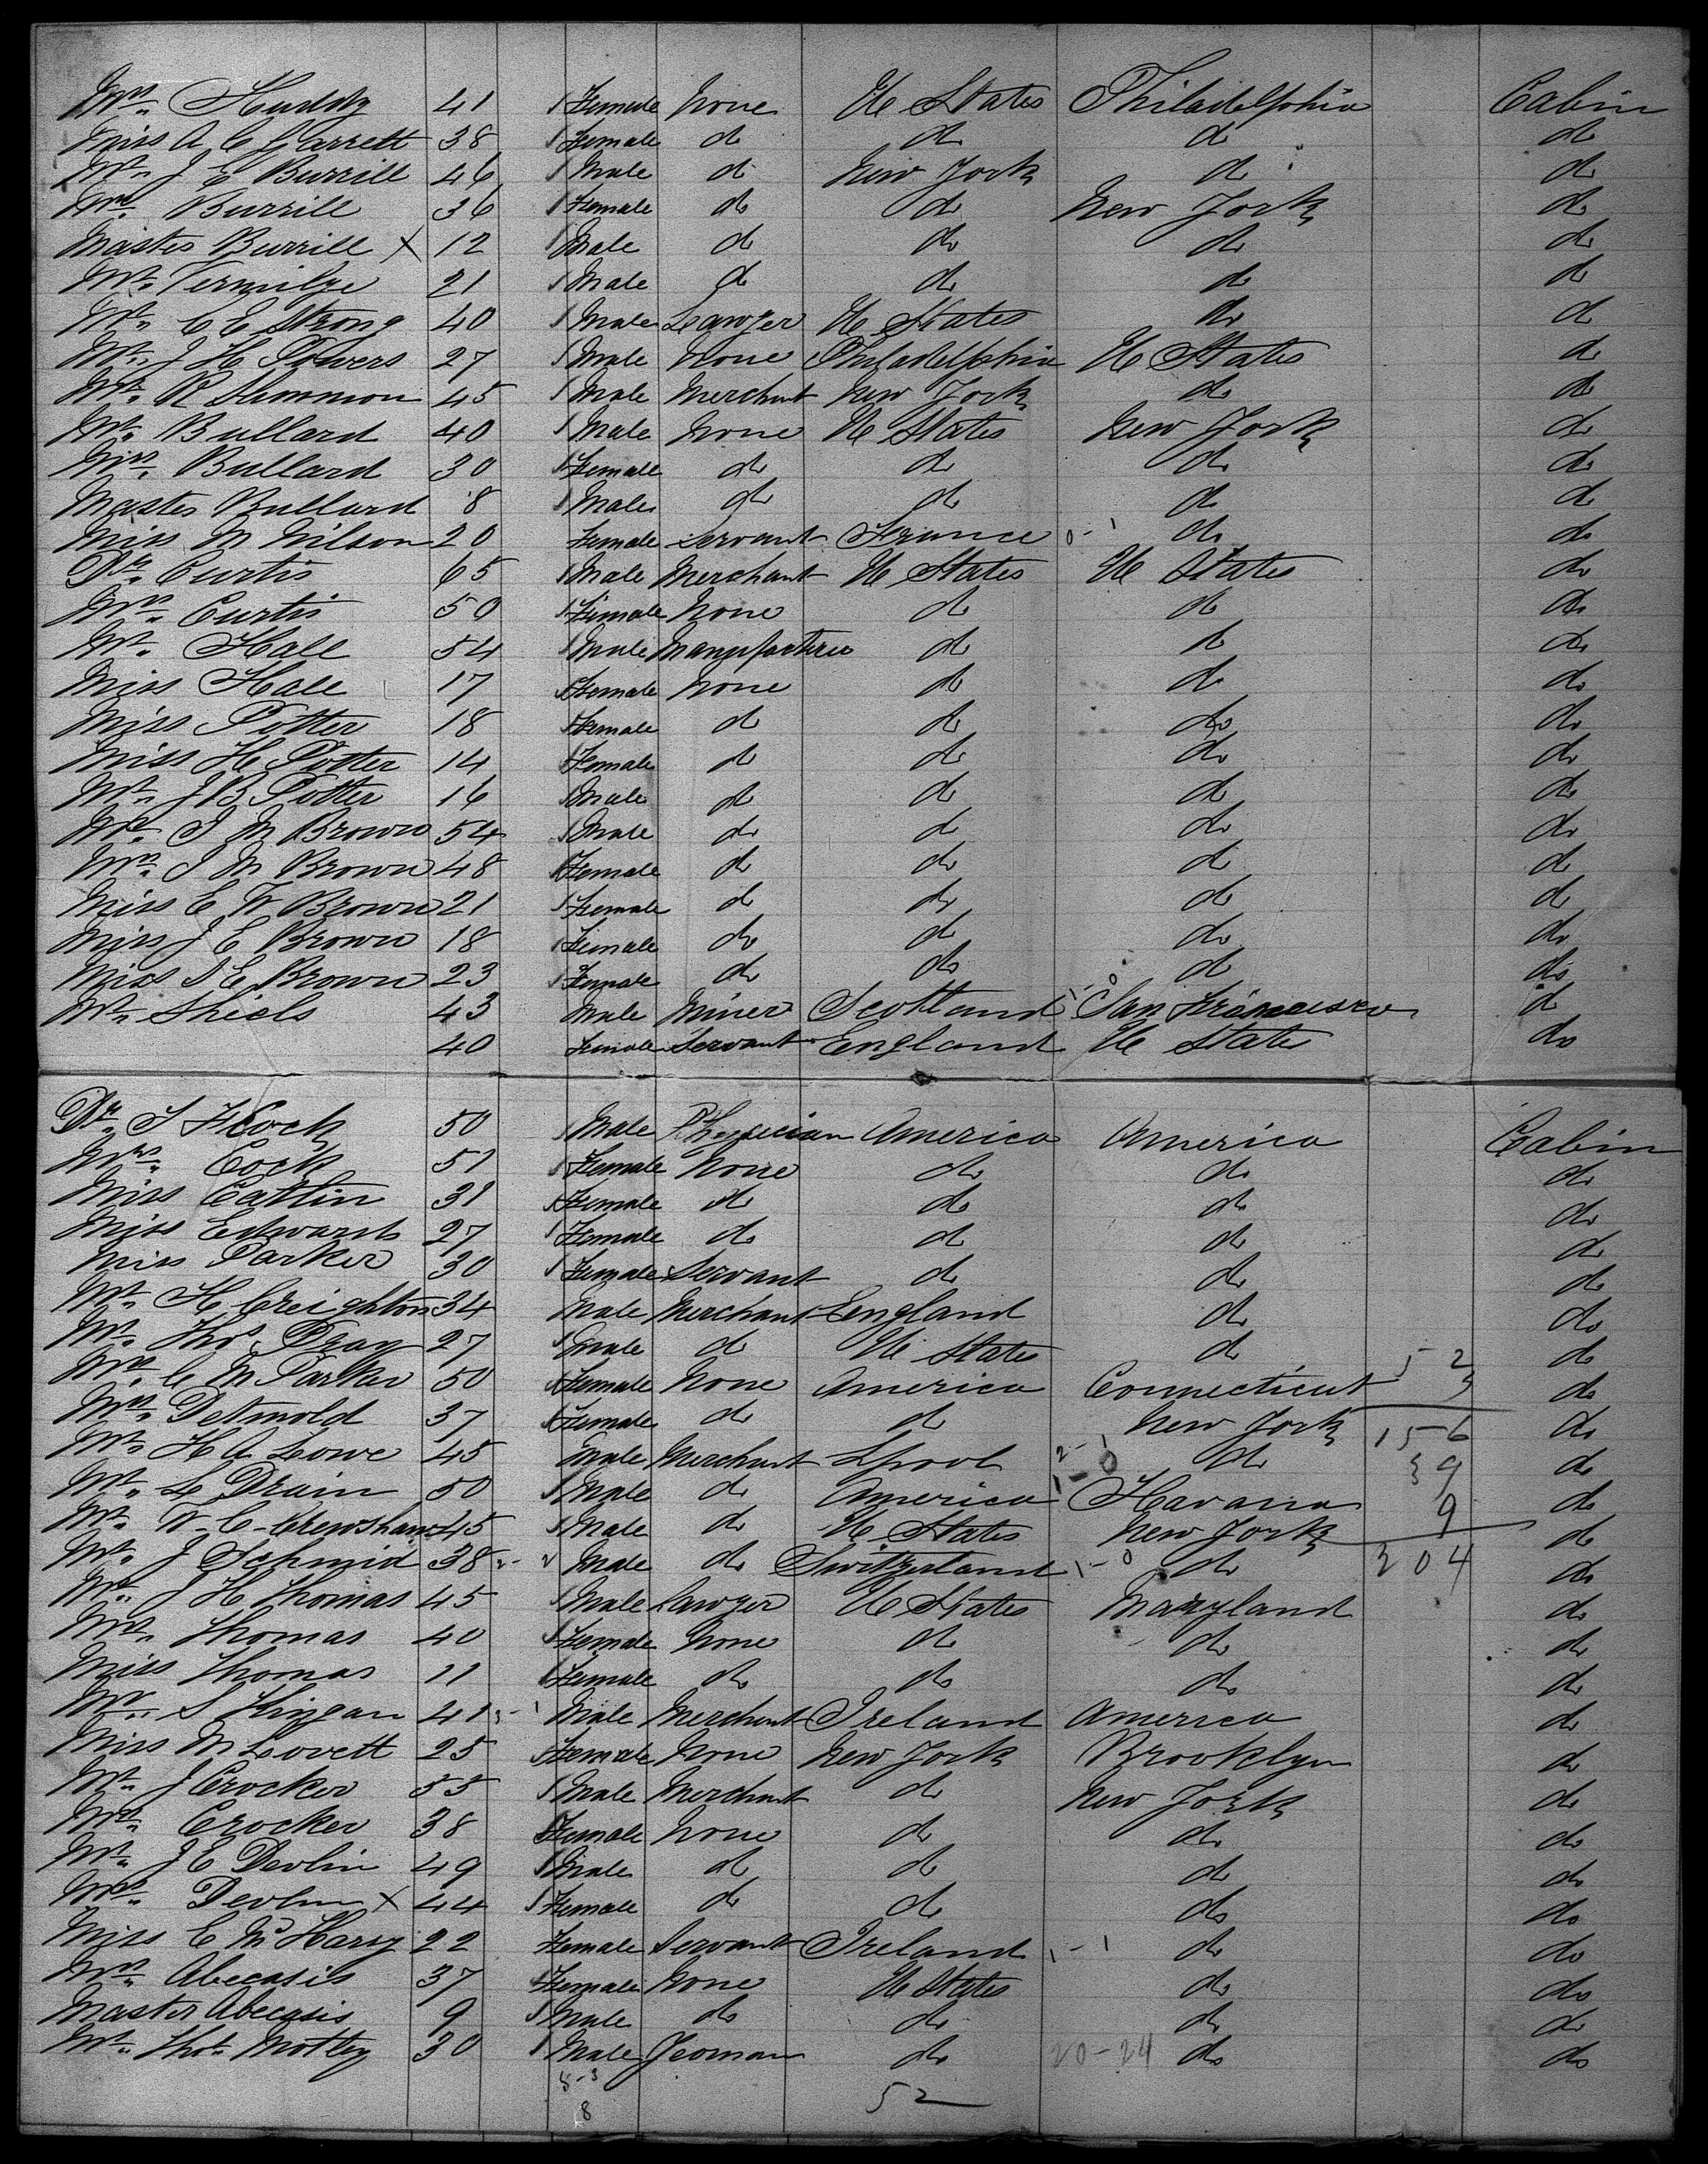 Mrs. Huddy 41 1 Female None U States Philadelphia Cabin
Miss A C Garrett 38 1 Female do do do do
Mr. J E Burrill 46 1 Male do New York do do
Mrs. Burrill 36 1 Female do do New York do
Master Burrill X 12 1 Male do do do do
Mr. Vermilye 21 1 Male do do do do
Mr. C E Strong 40 1 Male Lawyer U States do do
Mr. J H Powers 27 1 Male None Philadelphia U States do
Mr. R Slemmon 45 1 Male Merchant New York do do
Mr. Bullard 40 1 Male None U States New York do
Mrs. Bullard 30 1 Female do do do do
Master Bullard 8 1 Male do do do do
Miss M Wilson 20 Female Servant France 0-1 do do
Dr. Curtis 65 1 Male Merchant U States U States do
Mrs. Curtis 50 1 Female None do do do
Mr. Hall 54 1 Male Manufacturer do do do
Miss Hall 17 1 Female None do do do
Miss Potter 18 1 Female do do do do
Miss H Potter 14 1 Female do do do do
Mr. J B Potter 16 1 Male do do do do
Mr. J M Brown 54 1 Male do do do do
Mrs. J M Brown 48 1 Female do do do do
Miss E W Brown 21 1 Female do do do do
Miss J E Brown 18 1 Female do do do do
Miss S E Brown 23 1 Female do do do do
Mr. Shiels 43 Male Miner Scotland 1-0 San Francisco do
40 Female Servant England U States do
Dr. T F Cock 50 1 Male Physician America America Cabin
Mrs. Cock 51 1 Female None do do do
Miss Catlin 31 1 Female do do do do
Miss Edwards 27 1 Female do do do do
Miss Parker 30 1 Female Servant do do do
Mr. H Creighton 34 Male Merchant England do do
Mr. Thos. Dray 27 1 Male do U States do do
Mrs. C M Parker 50 1 Female None America Connecticut 52 3 do
Mrs. Detmold 37 1 Female do do New York 156 do
Mr. H A Lowe 45 Male Merchant Lpool 2-1 do 39 do
Mr. L Drain 50 1 Male do America 1-0 Havana 9 do
Mr. W C Crenshaw 45 1 Male do U States New York do
Mr. J Schmid 38 Male do Switzerland 1-0 do 204 do
Mr. J H Thomas 45 1 Male Lawyer U States Maryland do
Mrs. Thomas 40 1 Female None do do do
Miss Thomas 11 1 Female do do do do
Mr. S Kingan 41 Male Merchant Ireland America do
Miss M Lovett 25 1 Female None New York Brooklyn do
Mr. J Crocker 55 1 Male Merchant do New York do
Mrs. Crocker 38 1 Female None do do do
Mr. J E Devlin 49 1 Male do do do do
Mrs. Devlin X 44 1 Female do do do do
Miss E McHary 22 Female Servant Ireland 1-1 do do
Mrs. Abecasis 37 1 Female None U States do do
Master Abecasis 9 1 Male do do do do
Mr. Thos. Motley 30 1 Male Yeoman do 20-24 do do
5-3
8 52